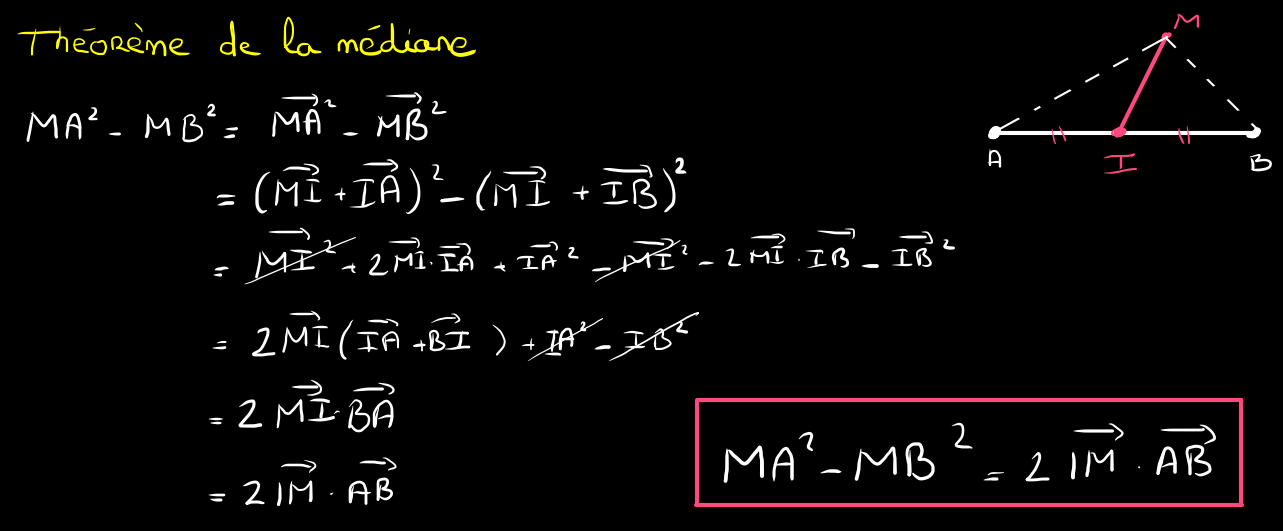 Théorème de la médiane
M
A
I
B
MA² - MB² = \overrightarrow{MA}² - \overrightarrow{MB}²
= (\overrightarrow{MI} + \overrightarrow{IA})² - (\overrightarrow{MI} + \overrightarrow{IB})²
= \overrightarrow{MI}² + 2\overrightarrow{MI}·\overrightarrow{IA} + \overrightarrow{IA}² - \overrightarrow{MI}² - 2\overrightarrow{MI}·\overrightarrow{IB} - \overrightarrow{IB}²
= 2\overrightarrow{MI}(\overrightarrow{IA} + \overrightarrow{BI}) + IA² - IB²
= 2\overrightarrow{MI}·\overrightarrow{BA}
= 2\overrightarrow{IM}·\overrightarrow{AB}
MA² - MB² = 2\overrightarrow{IM}·\overrightarrow{AB}